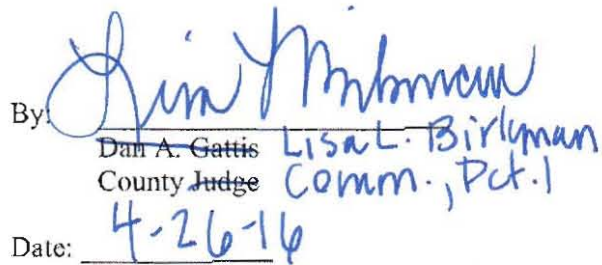 By: Lisa L Birkman
Dan A. Gattis Lisa L. Birkman
County Judge Comm., Pct. 1
Date: 4-26-16